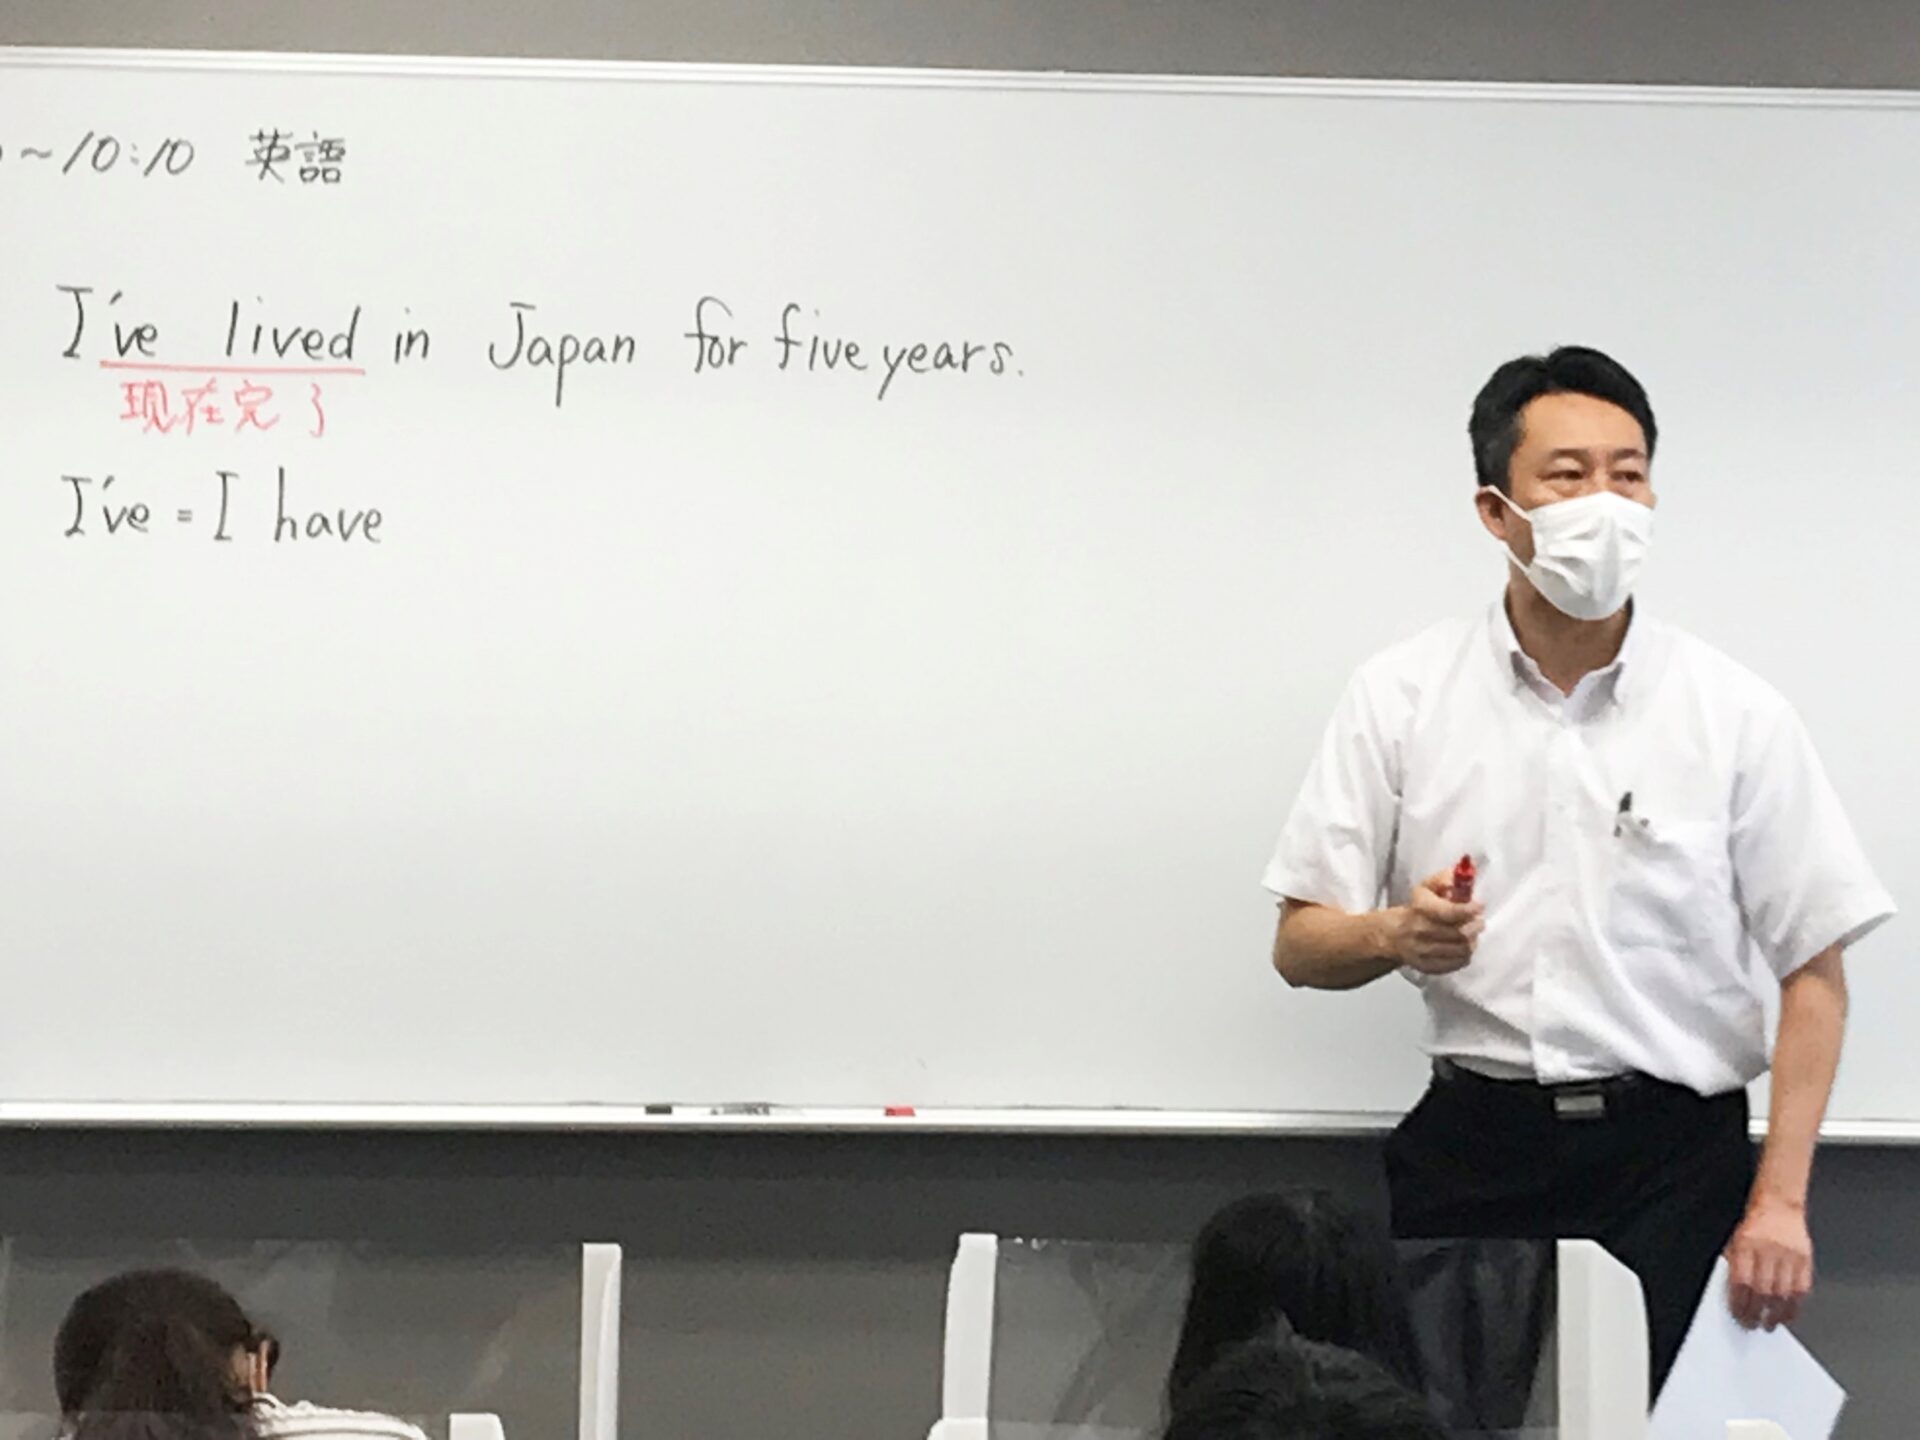 ~10:10 英語
I've lived in Japan for five years.
現在完了
I've = I have